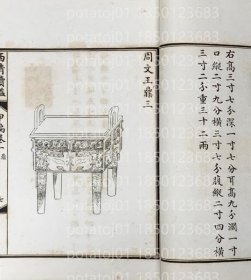 右高三寸七分深一寸七分耳高九分濶一寸
口縱二寸九分橫三寸七分腹縱二寸四分橫
三寸二分重三十二兩
周文王鼎三
西清續鑑 甲編卷一 鼎 七
potatoj01 1850123868